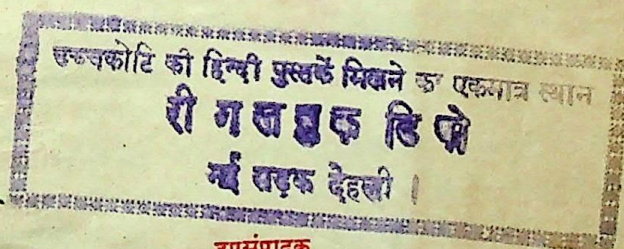 उच्चकोटि की हिन्दी पुस्तकें मिलने का एकमात्र स्थान
रीगल बुक डिपो
नई सड़क देहली ।
उपसंपादक